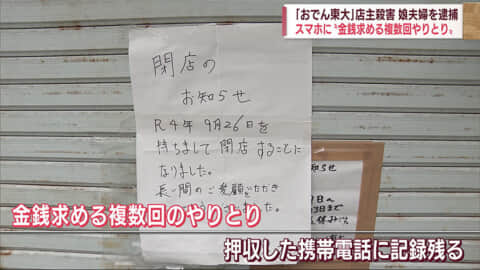 「おでん東大」店主殺害 娘夫婦を逮捕
スマホに“金銭求める複数回やりとり”
閉店の
お知らせ
R4年 9月26日を
持ちまして閉店することに
なりました。
長い間のご愛顧いただき
ました。
知らせ
日へ
日まで
金銭求める複数回のやりとり
押収した携帯電話に記録残る